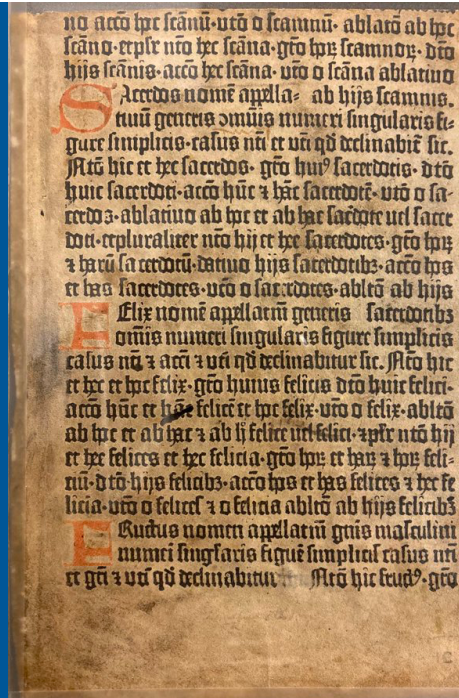 no accō hoc scānū·vtō o scamnū· ablatō ab hoc
scāno·etplr̄ nt̄o hec scāna·gt̄o hoꝝ scamnoꝝ· dt̄o
hijs scānis·accō hec scāna· vtō o scāna ablatiuo
SAcerdos nomē appella⸗ ab hijs scamnis.
tiuū generis ōmuis numeri singularis fi⸗
gure simplicis·casus nt̄i et vt̄i qd̄ declinabit̄ sic.
Nt̄o hic et hec sacerdos· gt̄o huiꝰ sacerdotis· dt̄o
huic sacerdoti·accō hūc ⁊ hāc sacerdotē· vtō o sa⸗
cerdoꝫ·ablatiuo ab hoc et ab hac sac̄dote uel sacer
doti·etpluraliter nt̄o hij et hee sacerdotes·gt̄o hoꝝ
⁊ harū sacerdotū·datiuo hijs sacerdotibꝫ·accō hos
et has sacerdotes·vtō o sacerdotes·abltō ab hijs
FElix nomē appellatiū generis sacerdotibꝫ
omīs numeri singularis figure simplicis
casus nt̄i ⁊ actī ⁊ vt̄i qd̄ declinabitur sic. Nt̄o hic
et hec et hoc felix·gt̄o huius felicis dt̄o huic felici·
accō hūc et hāc felicē et hoc felix·vtō o felix·abltō
ab hoc et ab hac ⁊ ab h̄ felice uel felici·⁊plr̄ nt̄o hij
et hee felices et hec felicia·gt̄o hoꝝ et haꝝ ⁊ hoꝝ feli⸗
ciū·dt̄o hijs felicibꝫ·accō hos et has felices ⁊ hec fe
licia·vtō o felices ⁊ o felicia abltō ab hijs felicibꝫ
FRuctus nomen appellatiū gn̄is masculini
numei singl̄aris figure simplicis casus nt̄i
et gt̄i ⁊ vt̄i qd̄ declinabitur Nt̄o hic fructꝰ·gt̄o